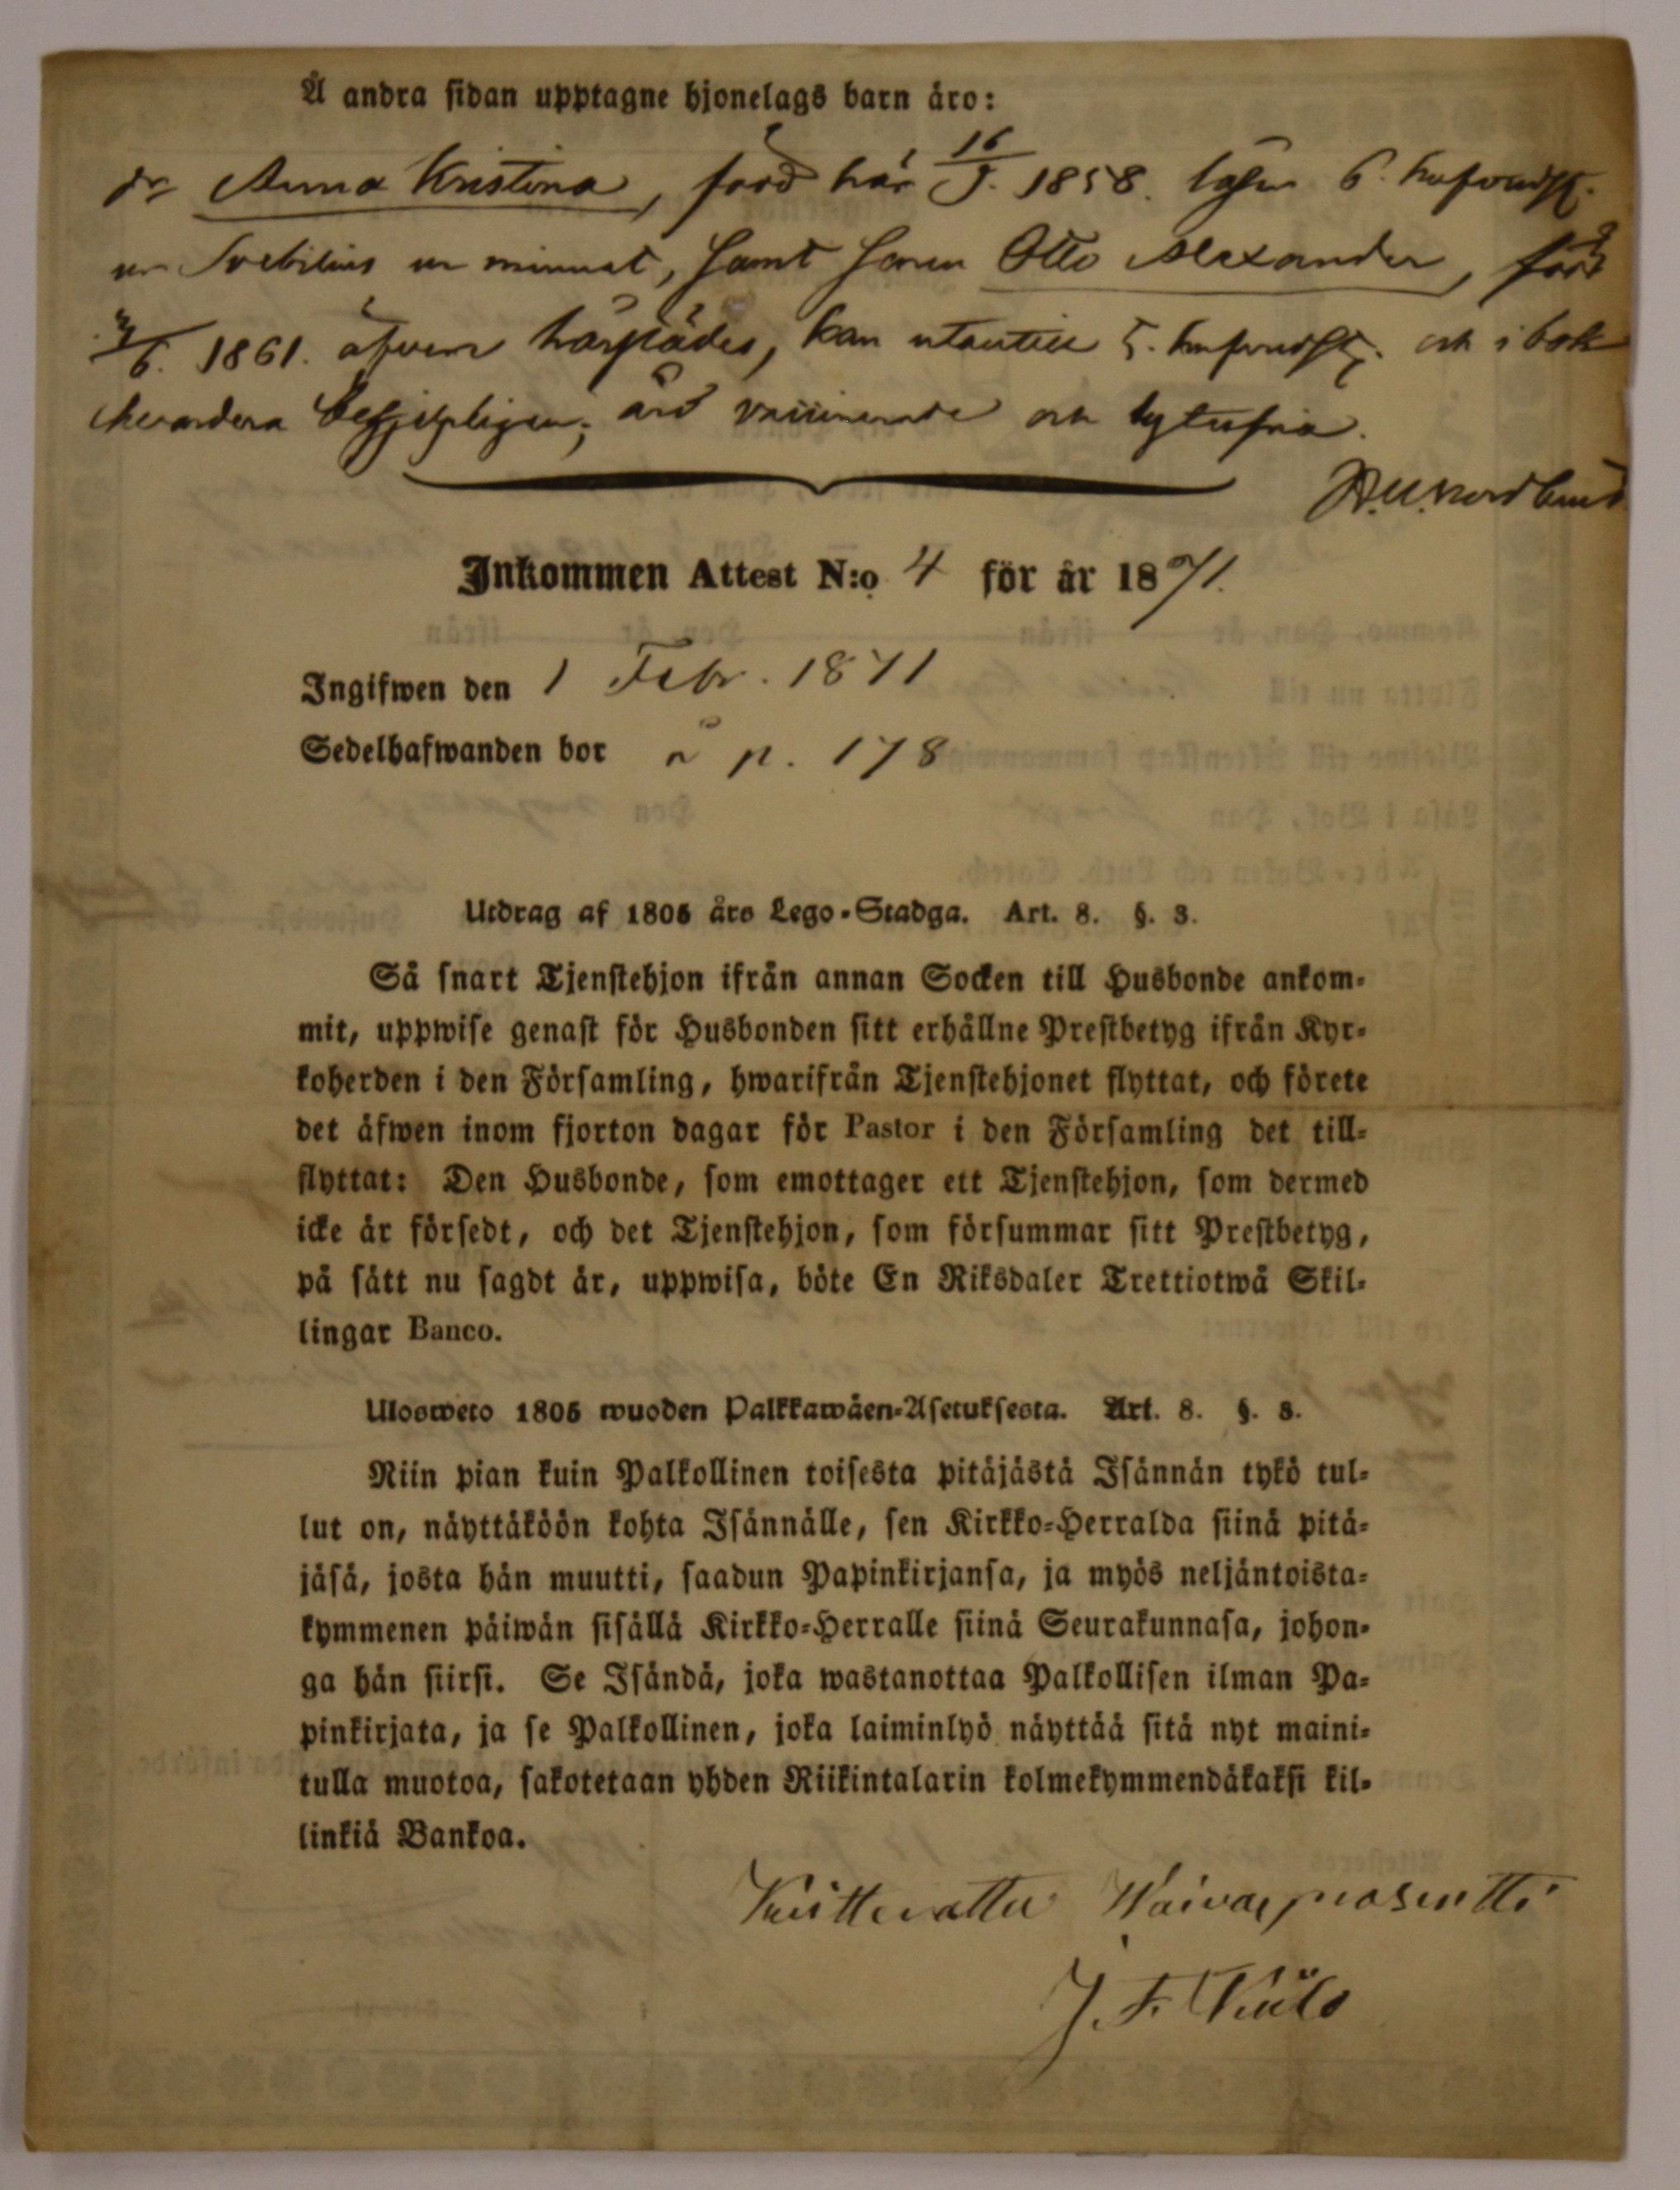 Å andra sidan upptagne hjonelags barn äro:
dr Anna Kristina, född här 16/9. 1858. läser 6. hufvudst.
ur Svebilius ur minnet, samt sonen Otto Alexander, född
/6. 1861. äfven härstädes, kan utantill 5. hufvudst. och i bok
begripligen; äro vaccinerade och lytesfria.
Nordlund
Inkommen Attest N:o 4 för år 1871.
Ingifwen den 1 Febr. 1871
Sedelhafwanden bor å p. 178
Utdrag af 1805 års Lego-Stadga. Art. 8. §. 3.
Så snart Tjenstehjon ifrån annan Socken till Husbonde ankom-
mit, uppwise genast för Husbonden sitt erhållne Prestbetyg ifrån Kyr-
koherden i den Församling, hwarifrån Tjenstehjonet flyttat, och förete
det äfwen inom fjorton dagar för Pastor i den Församling det till-
flyttat: Den Husbonde, som emottager ett Tjenstehjon, som dermed
icke är försedt, och det Tjenstehjon, som försummar sitt Prestbetyg,
på sätt nu sagdt är, uppwisa, böte En Riksdaler Trettiotwå Skil-
lingar Banco.
Ulosweto 1805 wuoden Palkkawäen-Asetuksesta. Art. 8. §. 3.
Niin pian kuin Palkollinen toisesta pitäjästä Isännän tykö tul-
lut on, näyttäköön kohta Isännälle, sen Kirkko-Herralda siinä pitä-
jäsä, josta hän muutti, saadun Papinkirjansa, ja myös neljäntoista-
kymmenen päiwän sisällä Kirkko-Herralle siinä Seurakunnasa, johon-
ga hän siirsi. Se Isändä, joka wastanottaa Palkollisen ilman Pa-
pinkirjata, ja se Palkollinen, joka laiminlyö näyttää sitä nyt maini-
tulla muotoa, sakotetaan yhden Riikintalarin kolmekymmendäkaksi kil-
linkiä Bankoa.
Kuitterattu Waivasprosentti
J. F.